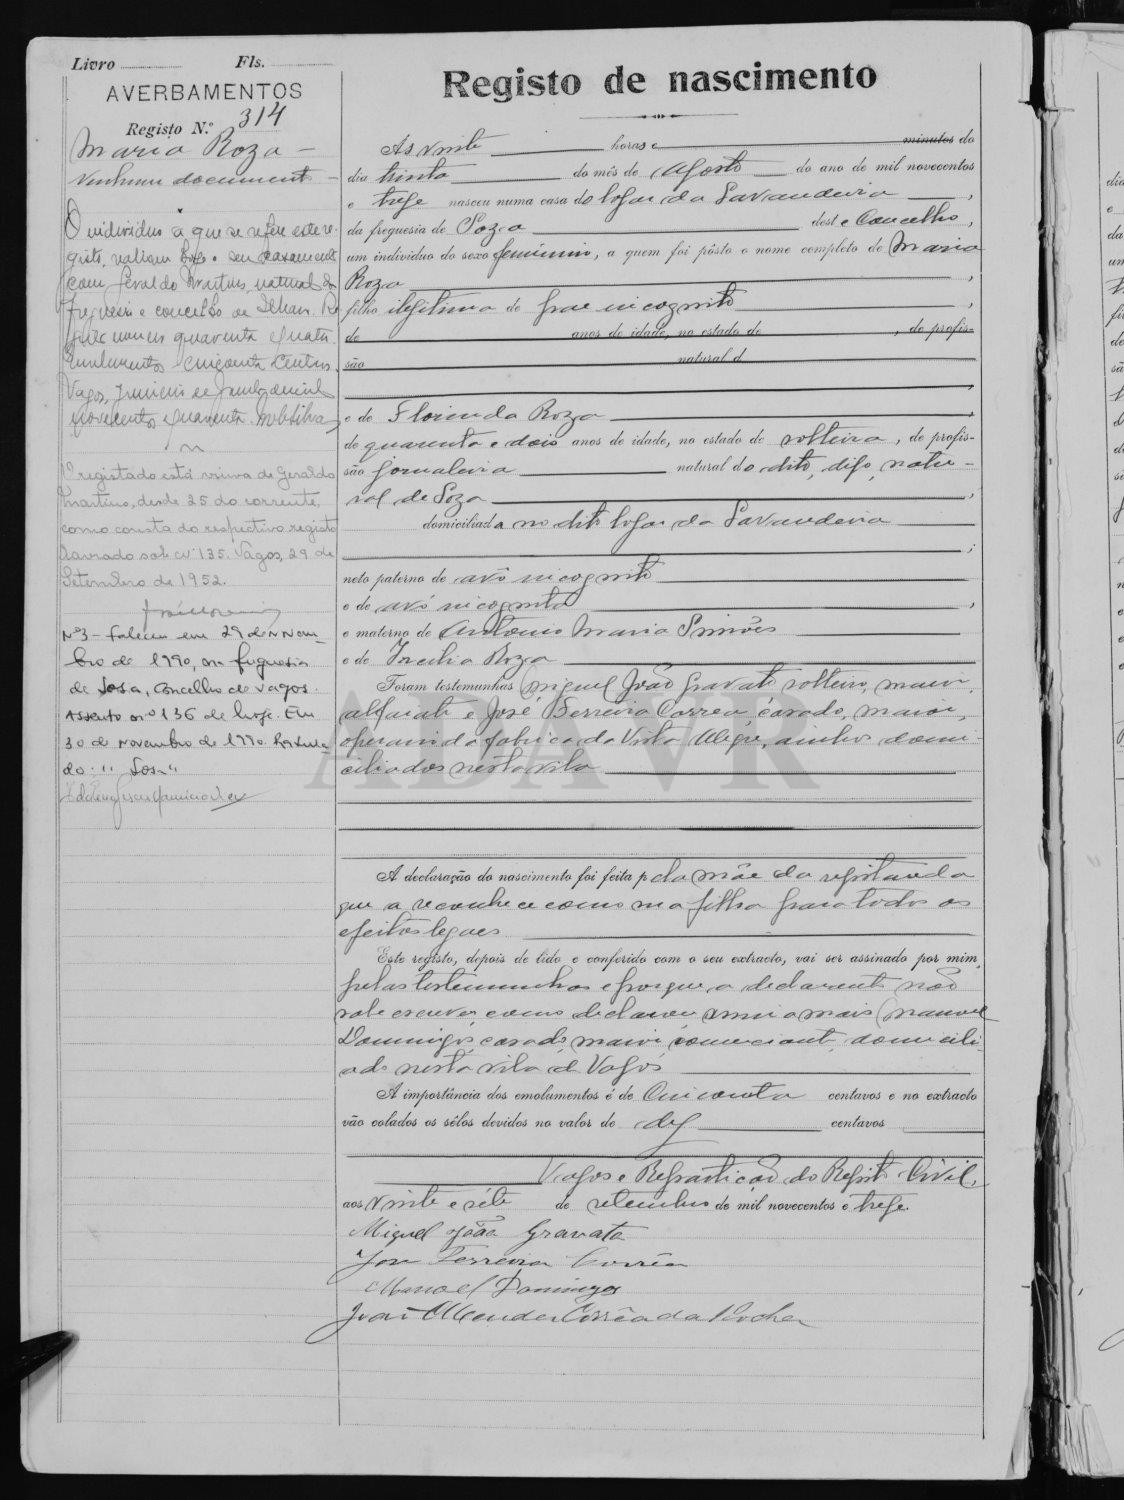 Livro Fls.
AVERBAMENTOS
Registo N.º 314
Maria Roza
Nenhum documento
O individuo a que se refere este re-
gisto, realizou hoje o seu casamento
com Geraldo Martins, natural da
freguesia e concelho de Ilhavo.
numero quarenta e quatro.
Emolumentos cincoenta centavos.
Vagos,
novecentos e quarenta.
O registado está viuva de Geraldo
Martins, desde 25 do corrente,
como consta do respectivo registo
lavrado sob o nº 135. Vagos, 29 de
Setembro de 1952.
Nº 3 - Faleceu em 29 de Novem-
bro de 1990, na freguesia
de Sosa, concelho de Vagos.
Assento nº 136 de hoje. Em
30 de Novembro de 1990.
do: " Sosa "
Registo de nascimento
Ás vinte horas e minutos do
dia trinta do mês de Agosto do ano de mil novecentos
e treze nasceu numa casa do logar da Lavandeira,
da freguesia de Soza deste Concelho,
um individuo do sexo feminino, a quem foi pôsto o nome completo de Maria
Roza,
filho ilegitima de pae incognito,
de anos de idade, no estado de , de profis-
são natural d
e de Florinda Roza,
de quarenta e dois anos de idade, no estado de solteira, de profis-
são jornaleira natural do dito, digo, natu-
ral de Soza,
domiciliada no dito logar da Lavandeira
;
neto paterno de avô incognito
e de avó incognita,
e materno de Antonio Maria Simões
e de Roza
Foram testemunhas Miguel João Gravato solteiro, maior,
alfaiate e José Ferreira Correa, casado, maior,
operario da fabrica da Vista Alegre, ambos domi-
ciliados nesta vila
ADAVR
A declaração do nascimento foi feita pela mãe da registanda
que a reconhece como sua filha para todos os
efeitos legaes
Este registo, depois de lido e conferido com o seu extracto, vai ser assinado por mim,
pelas testemunhas e porque a declarante não
sabe escrever como declarou assina mais Manoel
Domingos, casado, maior comerciante, domicili-
ado nesta vila de Vagos
A importância dos emolumentos é de Cincoenta centavos e no extracto
vão colados os sêlos devidos no valor de dez centavos
Vagos e Repartição do Registo Civil,
aos vinte e sete de setembro de mil novecentos e treze.
Miguel João Gravato
José Ferreira Corrêa
Manoel Domingos
João Mendes Corrêa da Rocha